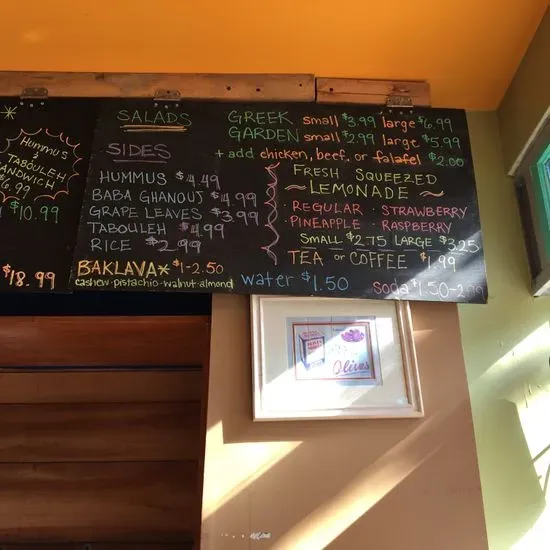 HUMMUS
&
TABOULEH
SANDWICH
$6.99
$10.99
$18.99
SALADS
GREEK small $3.99 large $6.99
GARDEN small $2.99 large $5.99
+ add chicken, beef, or falafel $2.00
SIDES
HUMMUS $4.49
BABA GHANOUJ $4.99
GRAPE LEAVES $3.99
TABOULEH $4.99
RICE $2.99
BAKLAVA* $1-2.50
cashew·pistachio·walnut·almond
FRESH SQUEEZED
~LEMONADE~
· REGULAR · STRAWBERRY
· PINEAPPLE · RASPBERRY
SMALL $2.75 LARGE $3.25
TEA or COFFEE $1.99
water $1.50
soda $1.50-2.99
Olives